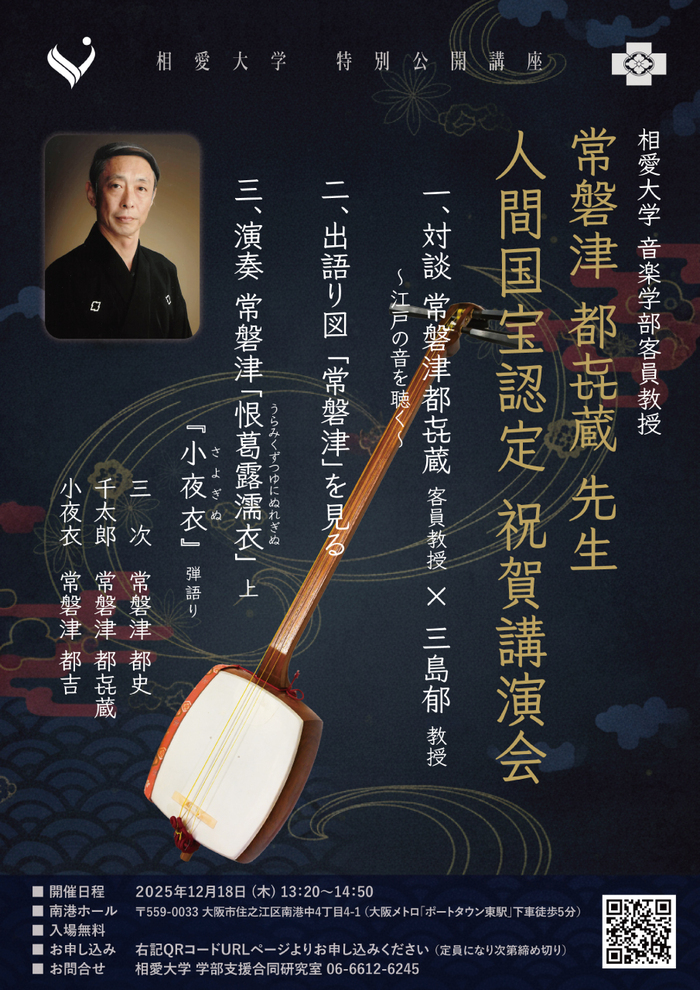 相愛大学 特別公開講座
相愛大学 音楽学部客員教授
常磐津 都㐂蔵 先生
人間国宝認定 祝賀講演会
一、対談 常磐津都㐂蔵 客員教授 × 三島郁 教授
～江戸の音を聴く～
二、出語り図「常磐津」を見る
三、演奏 常磐津「恨葛露濡衣」 上
うらみくずつゆにぬれぎぬ
『小夜衣』 弾語り
さよぎぬ
三次 常磐津 都史
千太郎 常磐津 都㐂蔵
小夜衣 常磐津 都吉
■ 開催日程 2025年12月18日（木）13:20〜14:50
■ 南港ホール 〒559-0033 大阪市住之江区南港中4丁目4-1（大阪メトロ「ポートタウン東駅」下車徒歩5分）
■ 入場無料
■ お申し込み 右記QRコードURLページよりお申し込みください（定員になり次第締め切り）
■ お問合せ 相愛大学 学部支援合同研究室 06-6612-6245